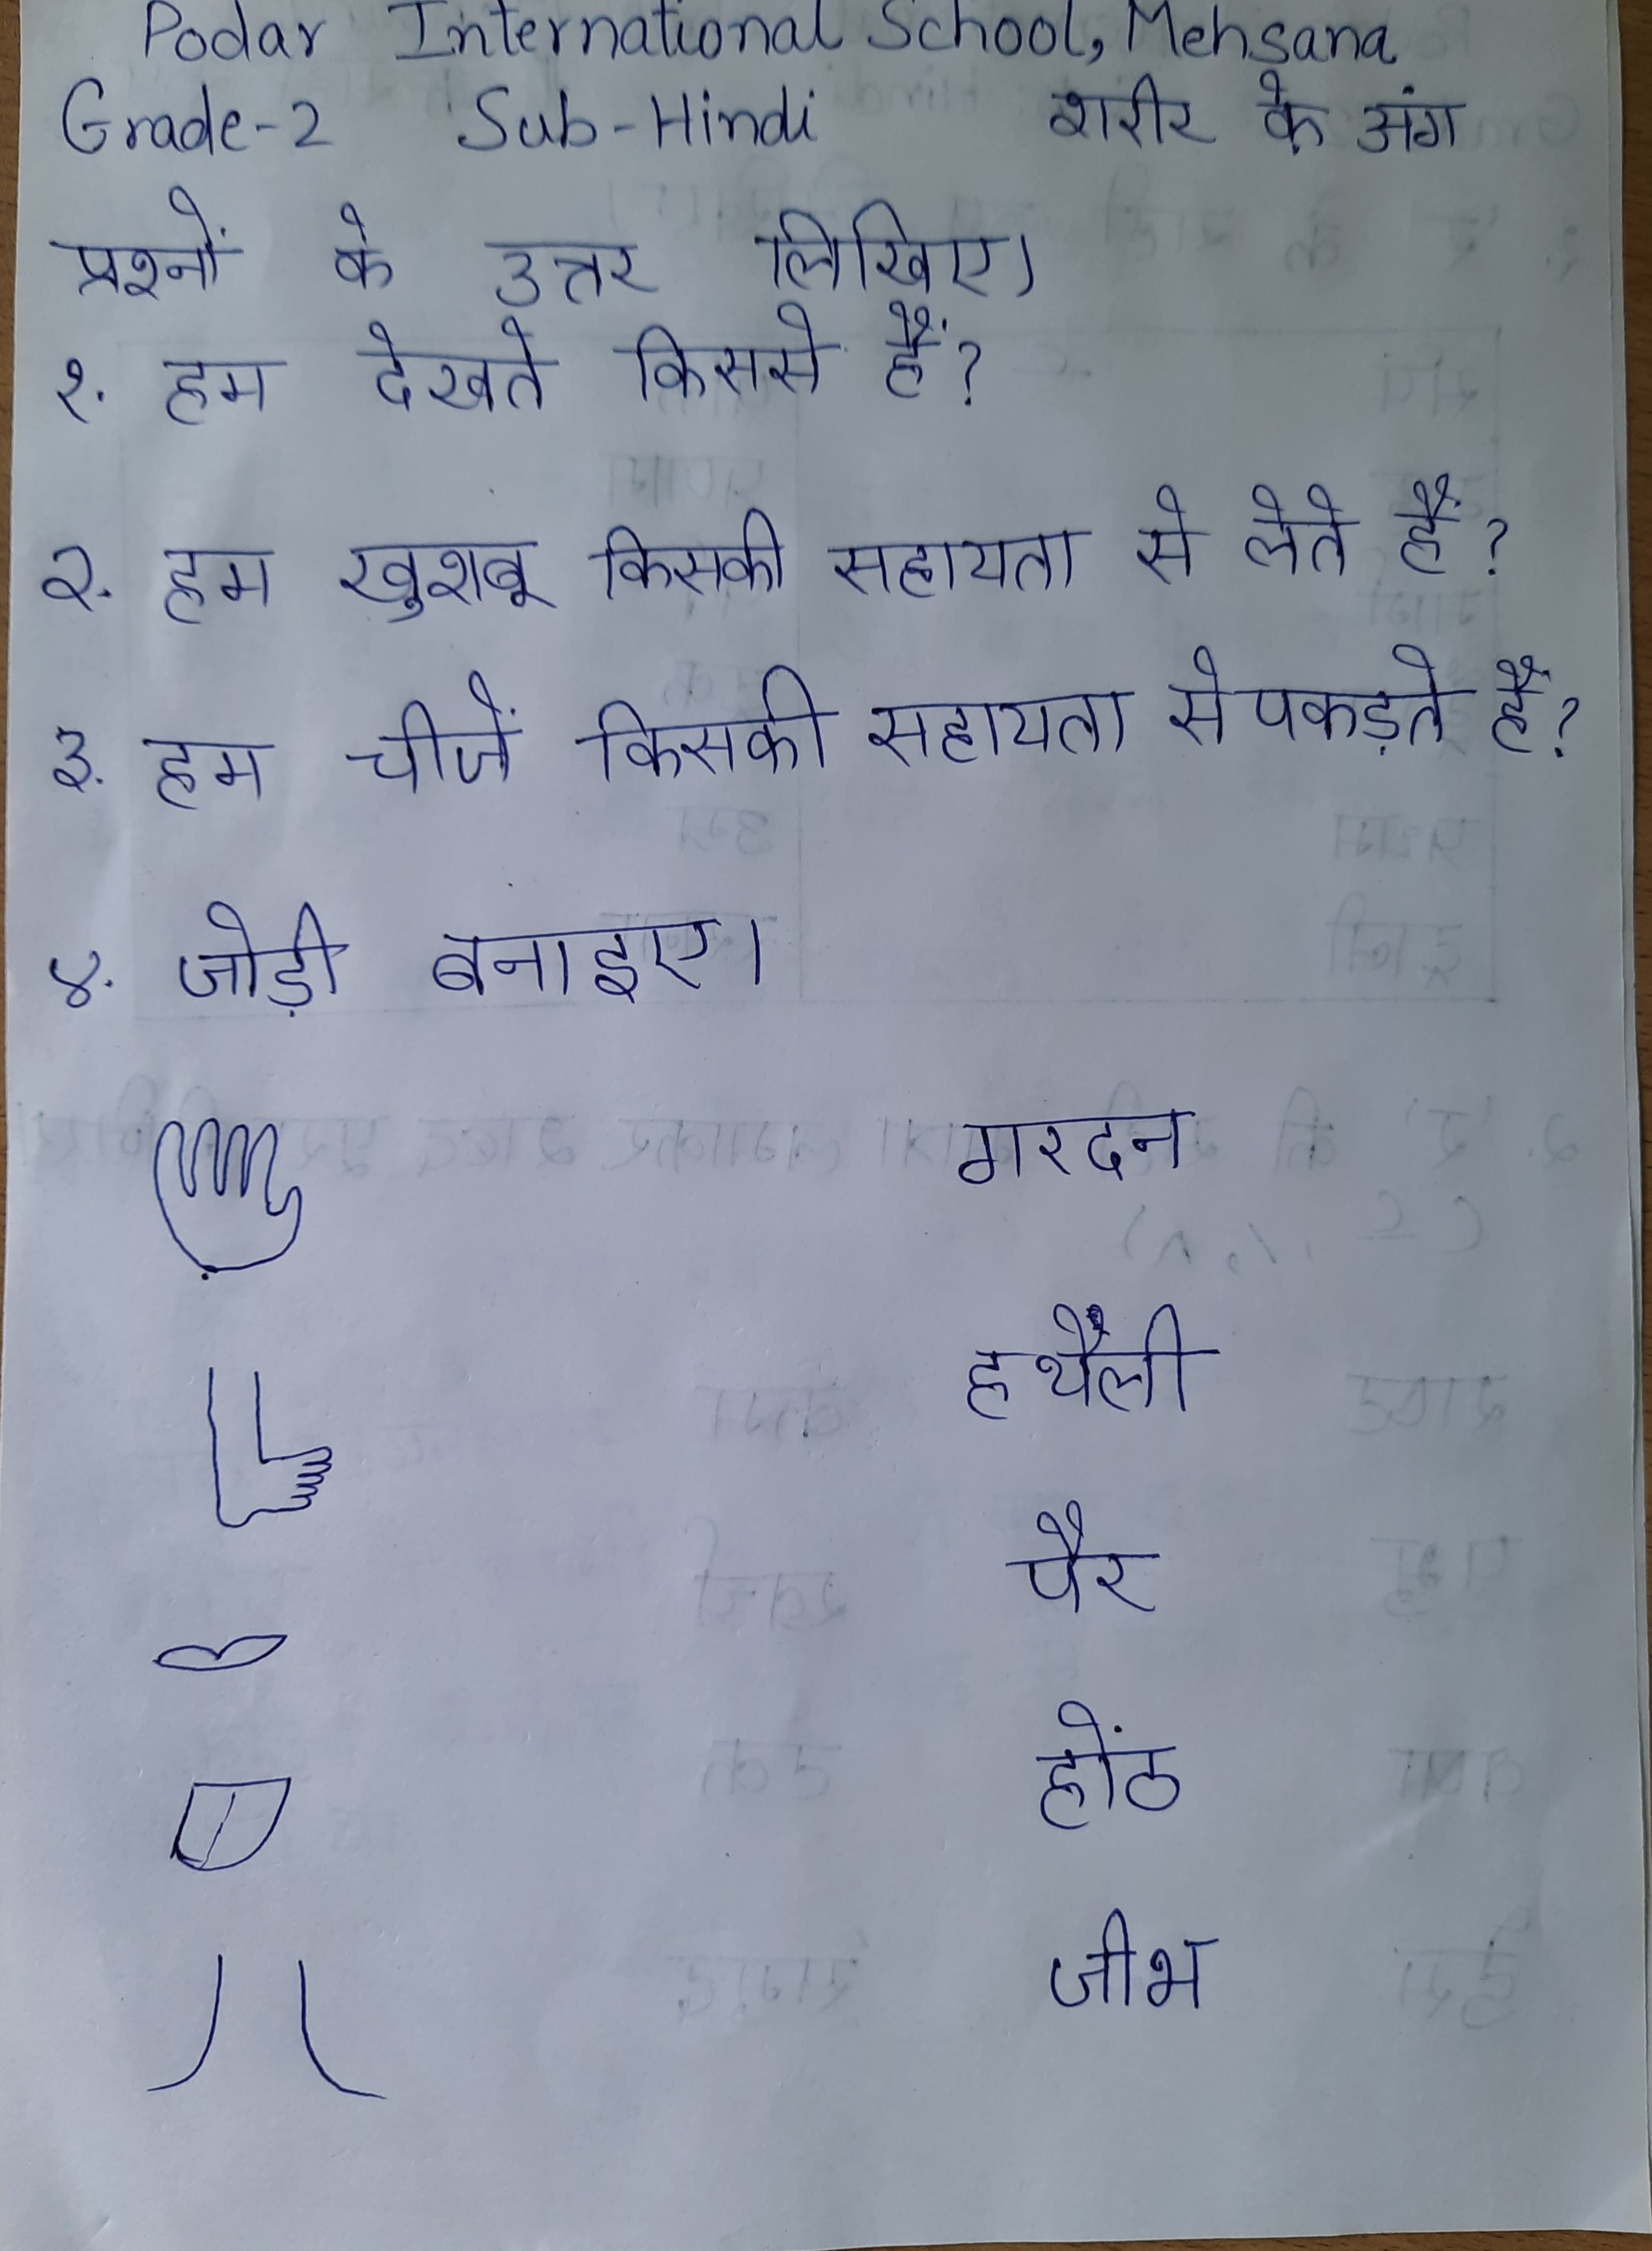 Podar International School, Mehsana
Grade-2 Sub-Hindi शरीर के अंग
प्रश्नों के उत्तर लिखिए।
१. हम देखते किससे हैं?
२. हम खुशबू किसकी सहायता से लेते हैं?
३. हम चीजें किसकी सहायता से पकड़ते हैं?
४. जोड़ी बनाइए।
गरदन
हथेली
पैर
होंठ
जीभ